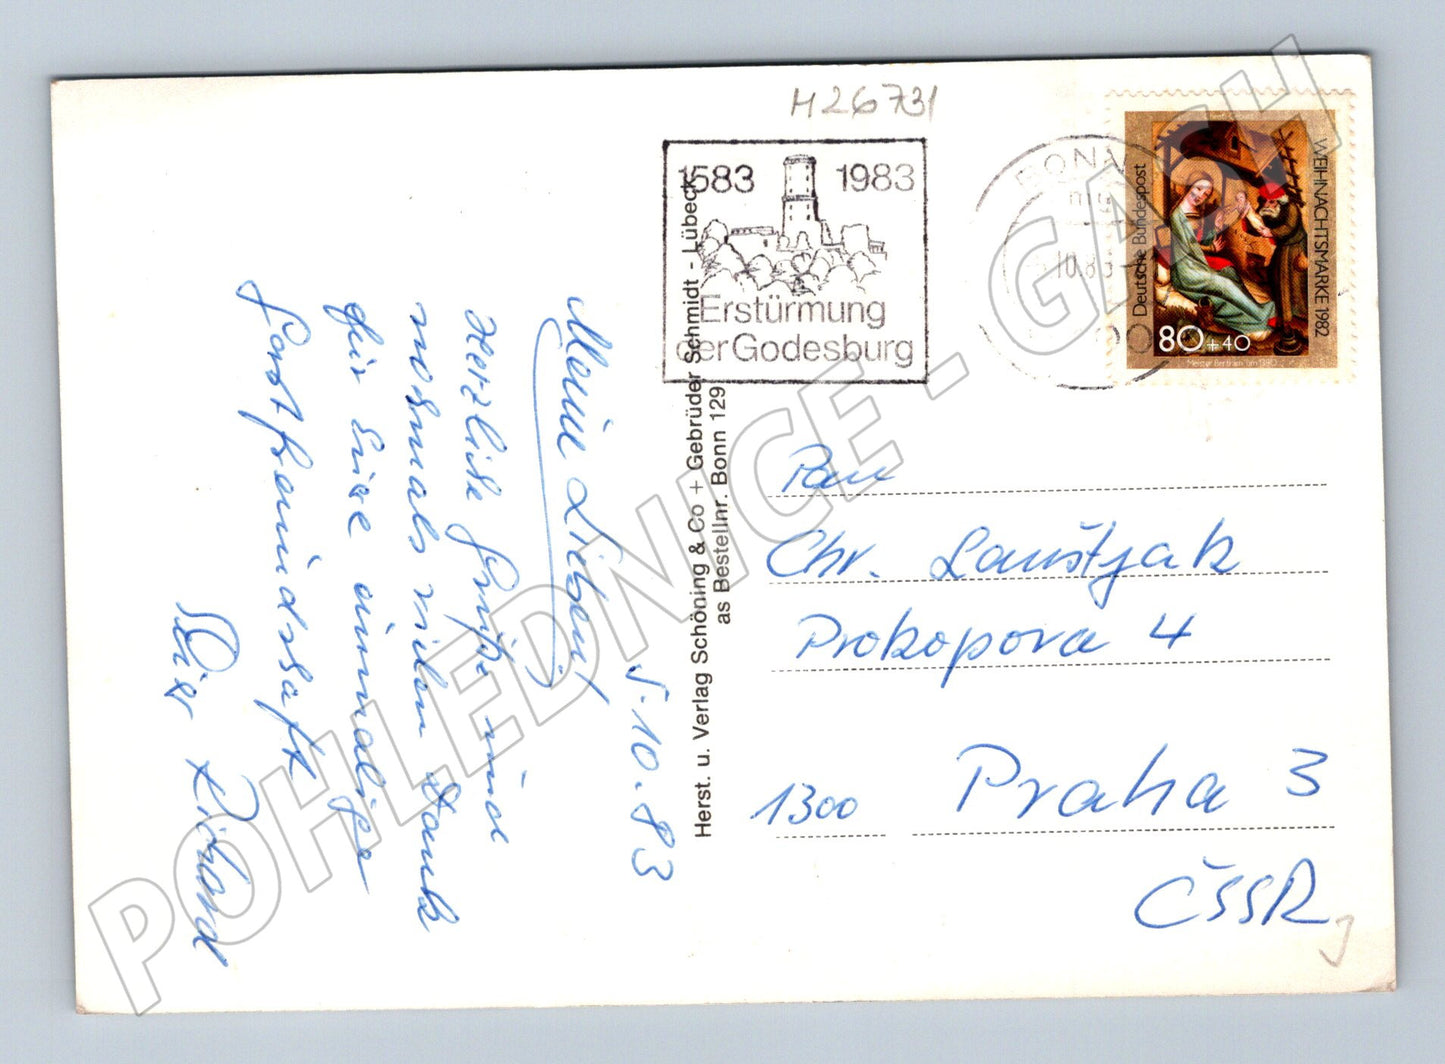 H26731
1583 1983
Erstürmung
der Godesburg
BONN
10.83
Deutsche Bundespost
WEIHNACHTSMARKE 1982
80+40
Meister Bertram um 1390
Meine Lieben!
5.10.83
Herzliche Grüße und
nochmals vielen Dank
für Eure einmalige
Gastfreundschaft
Richard
Herst. u. Verlag Schöning & Co + Gebrüder Schmidt - Lübeck
as Bestellnr. Bonn 129
Pan
Chr. Lauštjak
Prokopova 4
1300 Praha 3
ČSSR
POHLEDNICE - GASH